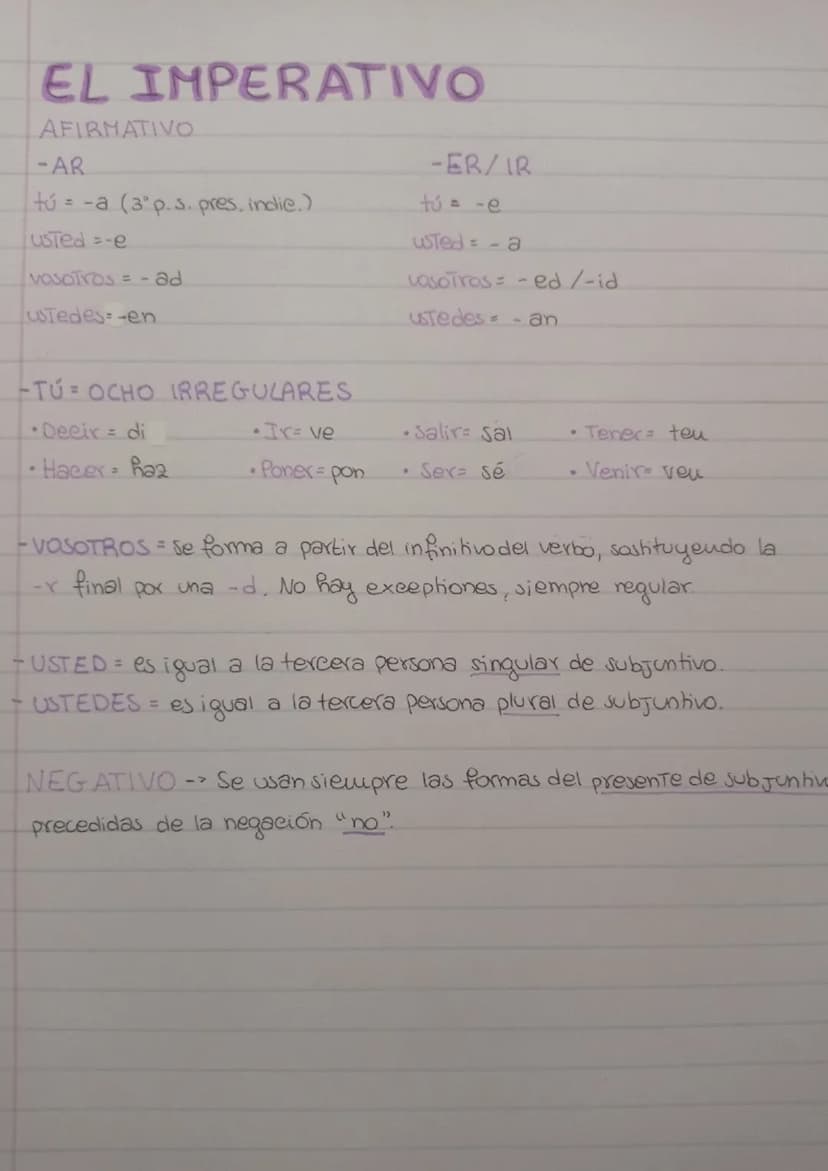 EL IMPERATIVO
AFIRMATIVO
-AR -ER/IR
tú = -a (3ª p. s. pres. indic.) tú = -e
usted = -e usted = -a
vosotros = -ad vosotros = -ed /-id
ustedes = -en ustedes = -an
-TÚ = OCHO IRREGULARES
•Decir = di •Ir = ve •Salir = sal •Tener = ten
•Hacer = haz •Poner = pon •Ser = sé •Venir = ven
-VOSOTROS = se forma a partir del infinitivo del verbo, sostituyendo la
-r final por una -d. No hay exceptiones, siempre regular.
-USTED = es igual a la tercera persona singular de subjuntivo.
-USTEDES = es igual a la tercera persona plural de subjuntivo.
NEGATIVO -> Se usan siempre las formas del presente de subjuntiv
precedidas de la negación "no".